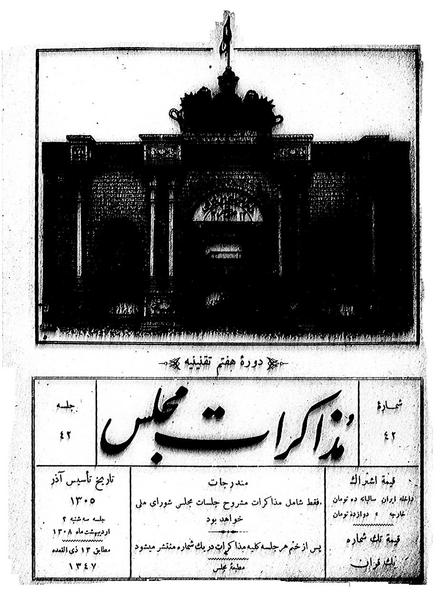 دورهٔ هفتم تقنینیه
شمارهٔ
۴۲
مذاکرات مجلس
جلسه
۴۲
قیمة اشتراك
داخله ایران سالیانه ده تومان
خارجه » دوازده تومان
قیمة تك شماره
یك قران
مندرجات
فقط شامل مذاکرات مشروح جلسات مجلس شورای ملی
خواهد بود
پس از ختم هر جلسه کلیه مذاکرات در یك شماره منتشر میشود
مطبعهٔ مجلس
تاریخ تأسیس آذر
۱۳۰۵
جلسه سه شنبه ۲
اردیبهشت ماه ۱۳۰۸
مطابق ۱۲ ذی القعده
۱۳۴۷